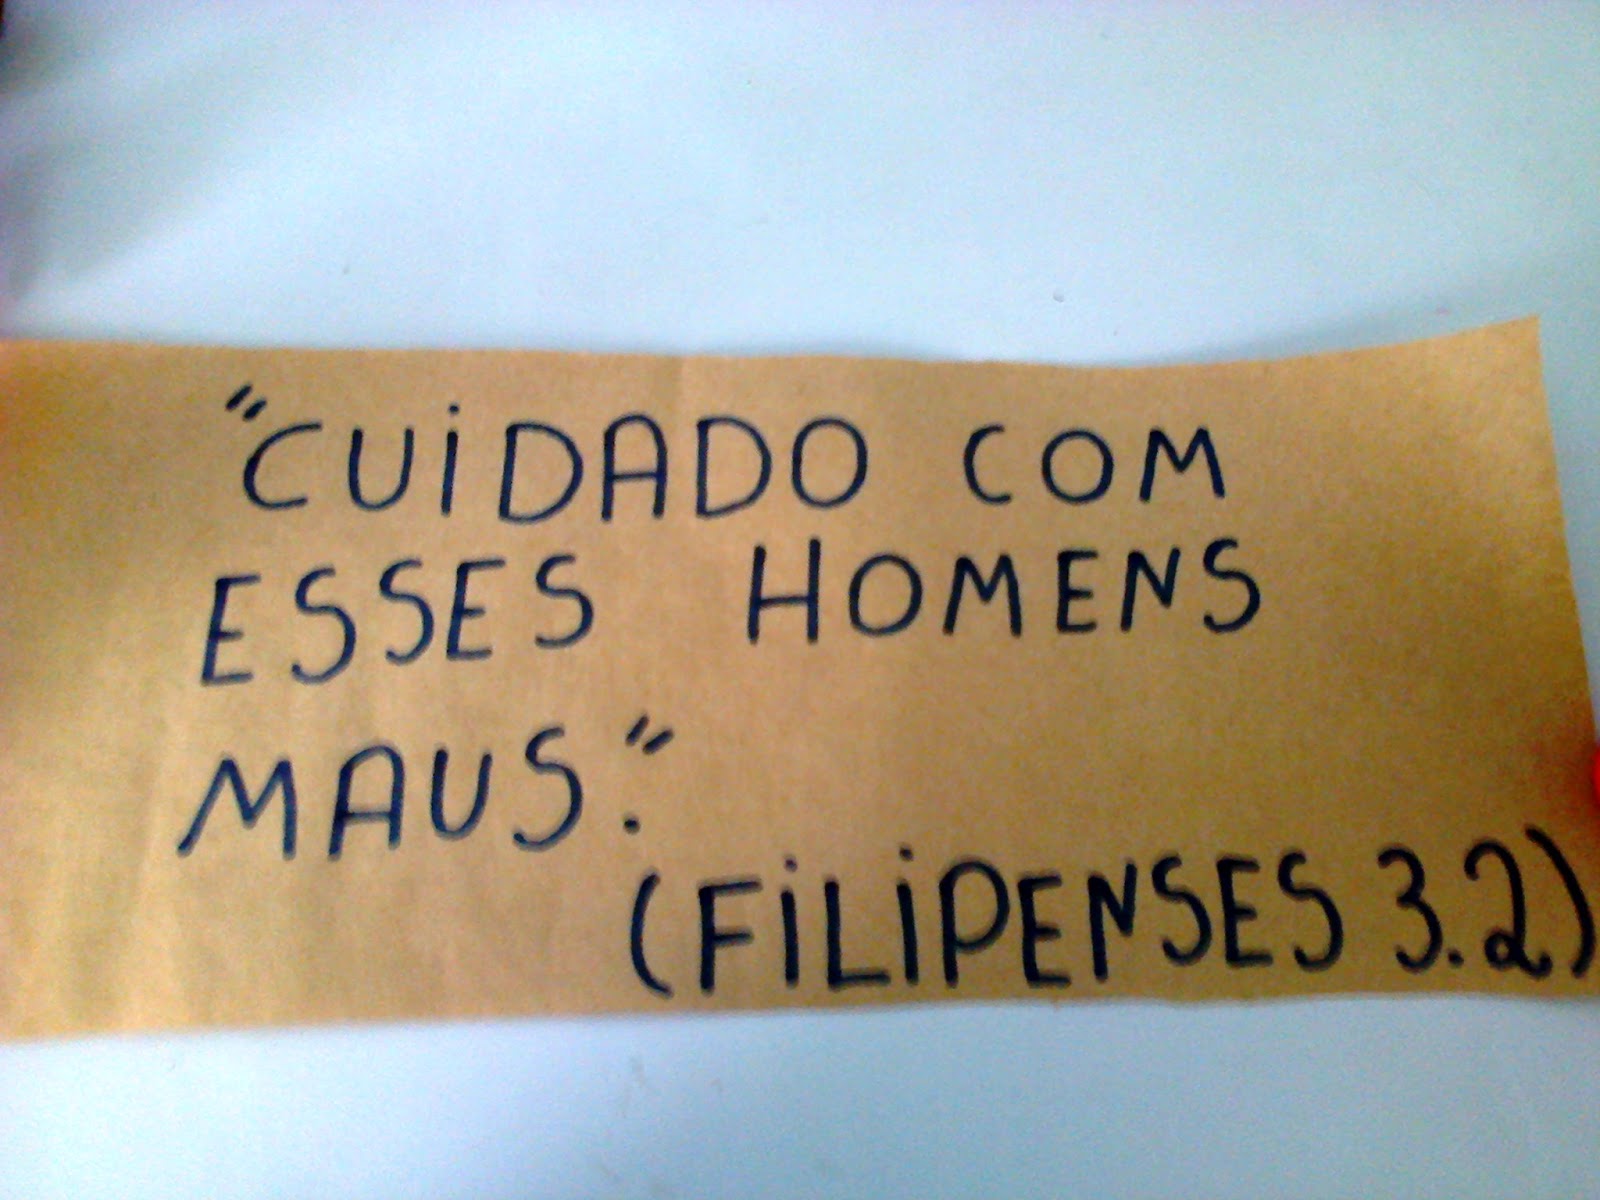 "CUIDADO COM
ESSES HOMENS
MAUS."
(FILIPENSES 3.2)